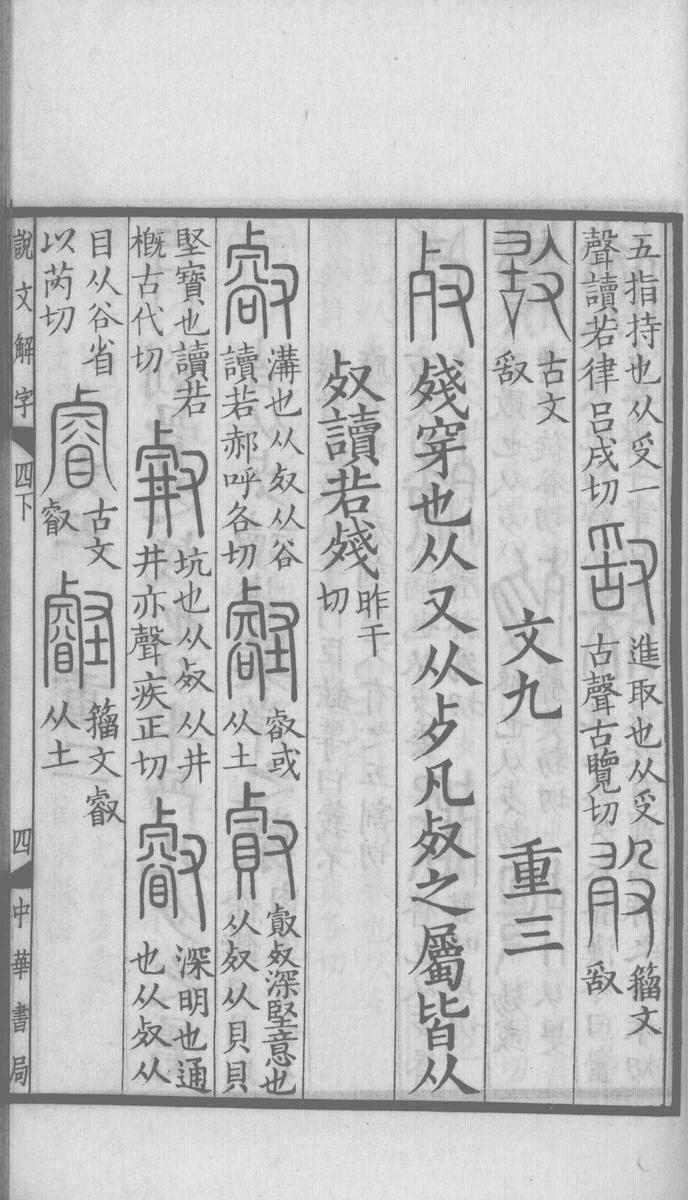 五指持也从𠬪一
聲讀若律呂戌切
進取也从𠬪
古聲古覽切
籒文
𠭖
古文
𠭖
文九
重三
殘穿也从又从歺凡𣦼之屬皆从
𣦼讀若殘
昨干
切
溝也从𣦼从谷
讀若郝呼各切
㕡或
从土
𣦼深堅意也
从𣦼从貝貝
堅寶也讀若
概古代切
坑也从𣦼从井
井亦聲疾正切
深明也通
也从𣦼从
目从谷省
以芮切
古文
叡
籒文叡
从土
說文解字
四下
四
中華書局